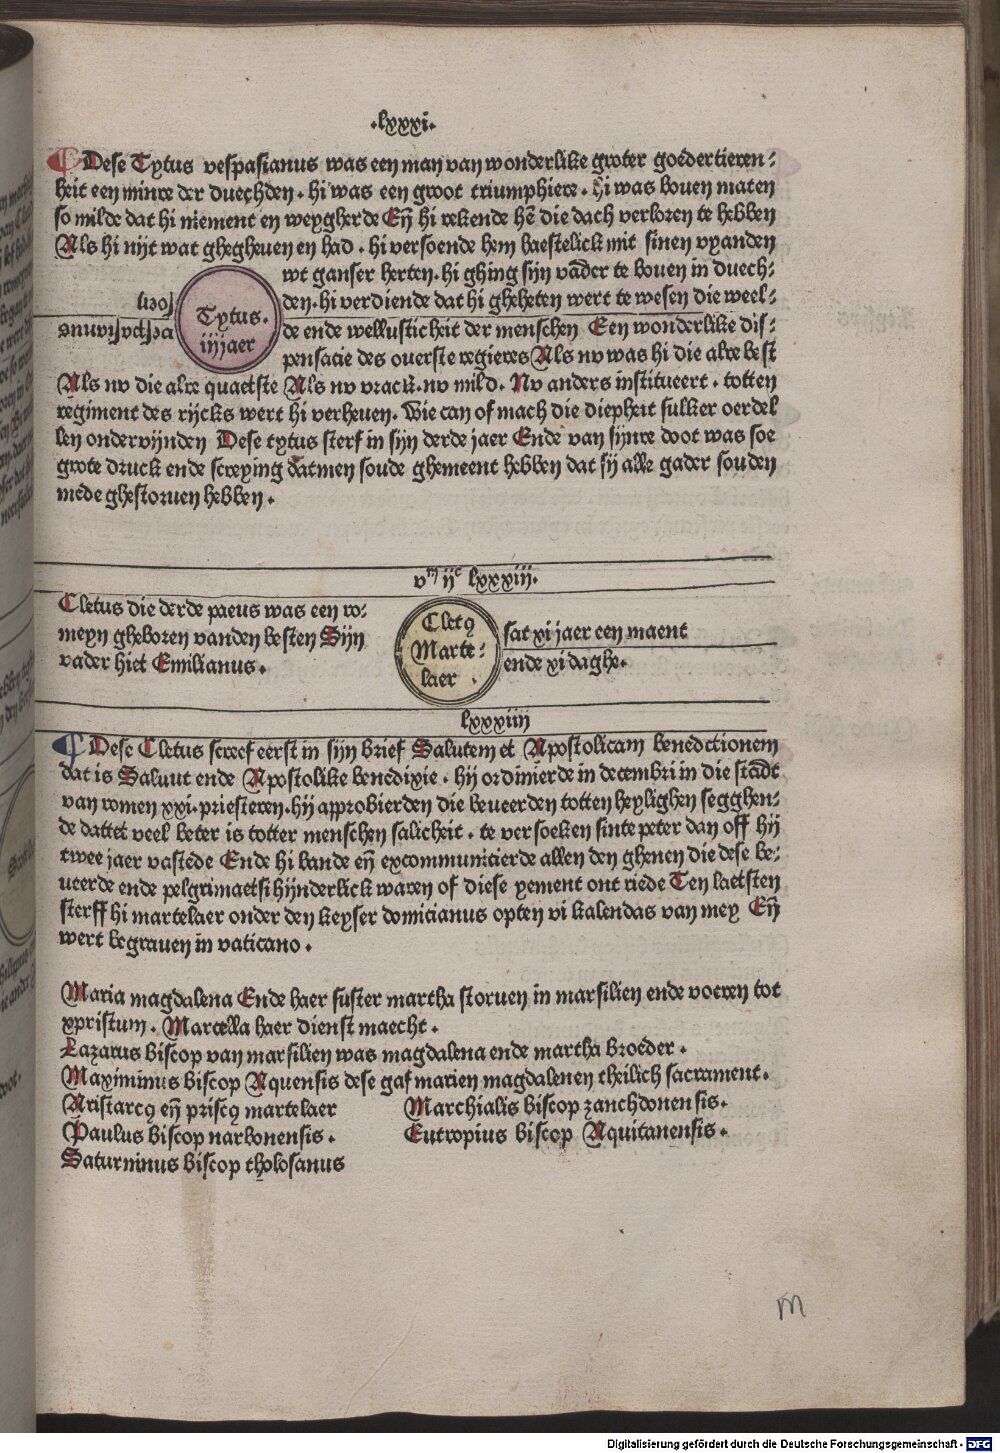 .lxxxi.
Dese Tytus vespasianus was een man van wonderlike groter goedertieren⸗
heit een minre der duechden. hi was een groot triumphiere. hi was bouen maten
so milde dat hi niement en weygherde Eñ hi rekende hē die dach verloren te hebben
Als hi nijt wat ghegheuen en had. hi versoende hem haestelick mit sinen vyanden
wt ganser herten. hi ghing sijn vāder te bouen in duech⸗
den. hi verdiende dat hi gheheten wert te wesen die weel⸗
de ende wellusticheit der menschen Een wonderlike dis⸗
pensacie des ouerste regieres Als nv was hi die alre best
Tytus.
iijjaer
Als nv die alre quaetste Als nv vrack. nv mild. Nv anders institueert. totten
regiment des rijcks wert hi verheuen. Wie can of mach die diepheit sulker oerdel
len ondervijnden Dese tytus sterf in sijn derde jaer Ende van sijnre doot was soe
grote druck ende screying datmen soude ghemeent hebben dat sij alle gader souden
mede ghestoruen hebben.
vᵐ ijᶜ lxxxiij.
Cletus die derde paeus was een ro⸗
meyn gheboren vanden besten Sijn
vader hiet Emilianus.
Cletꝯ
Marte⸗
laer
sat xi jaer een maent
ende xi daghe.
lxxxiiij
Dese Cletus screef eerst in sijn brief Salutem et Apostolicam benedctionem
dat is Saluut ende Apostolike benedixie. hij ordinierde in decembri in die stādt
van romen xxi. priesteren. hij approbierden die beueerden totten heylighen segghen⸗
de dattet veel beter is totter menschen salicheit. te versoeken sinte peter dan off hij
twee jaer vastede Ende hi bande eñ excommunicierde allen den ghenen die dese be⸗
ueerde ende pelgrimaetsi hijnderlick waren of diese yement ont riede Ten laetsten
sterff hi martelaer onder den keyser domicianus opten vi kalendas van mey Eñ
wert begrauen in vaticano.
Maria magdalena Ende haer suster martha storuen in marsilien ende voeren tot
xpristum. Marcella haer dienst maecht.
Lazarus biscop van marsilien was magdalena ende martha broeder.
Maximinus biscop Aquensis dese gaf marien magdalenen theilich sacrament.
Aristarcꝯ eñ priscꝯ martelaer
Marchialis biscop zanchdonensis.
Paulus biscop narbonensis.
Eutropius biscop Aquitanensis.
Saturninus biscop tholosanus
m
Digitalisierung gefördert durch die Deutsche Forschungsgemeinschaft - DFG